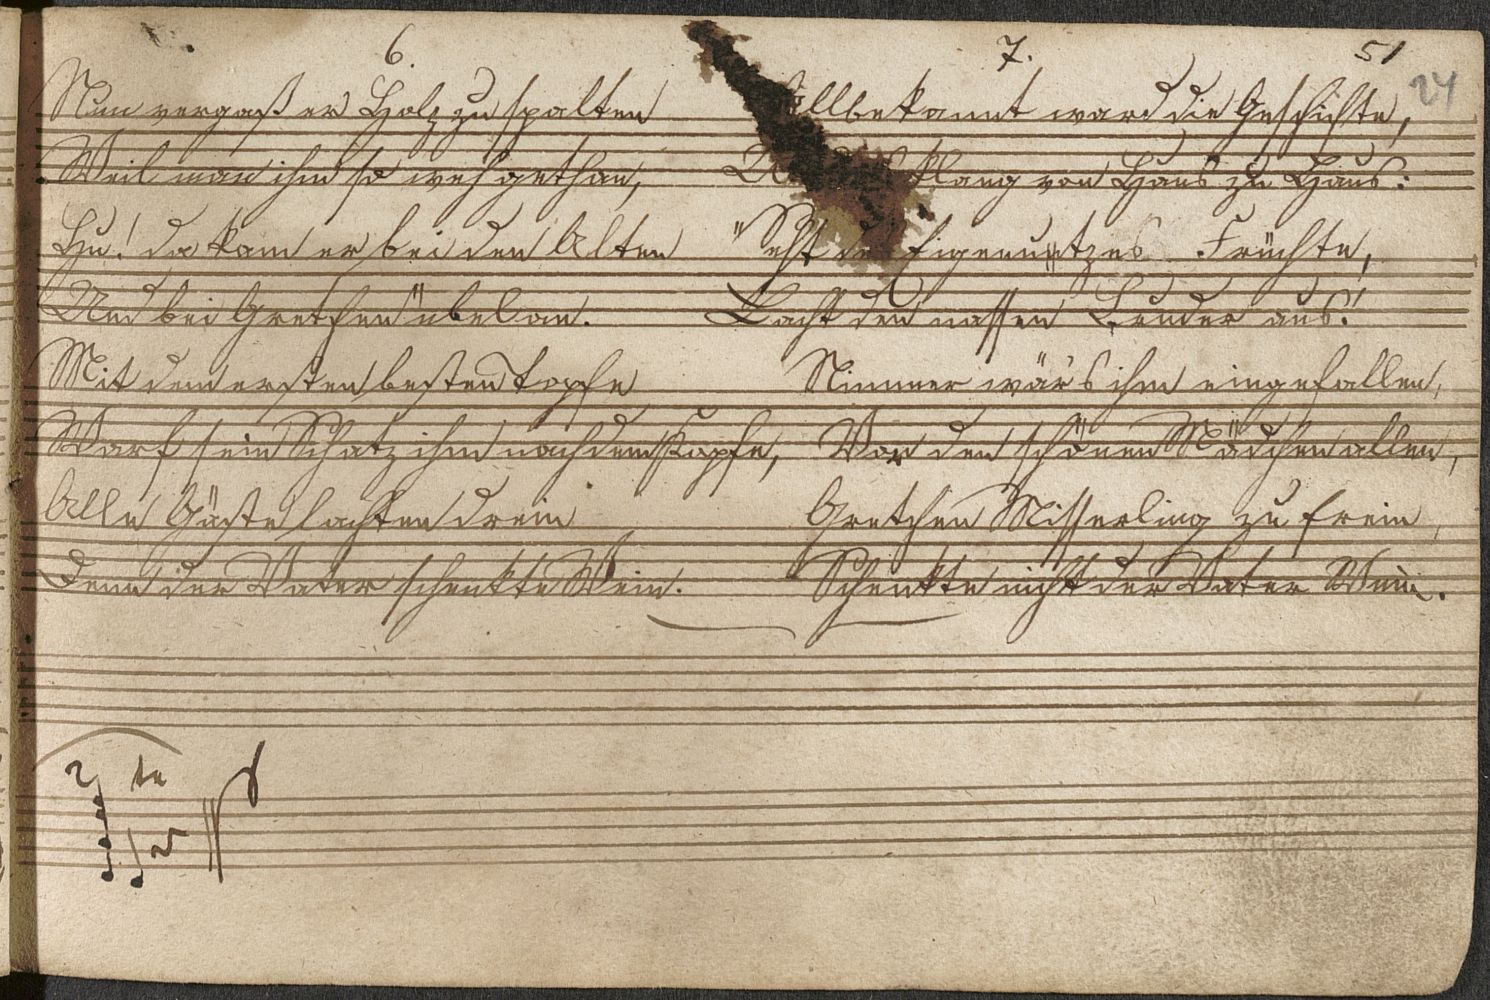 51
24
6.
Nun vergaß er Holz zu spalten
Weil man ihm so weh gethan,
Hu! da kam er bei den Alten
Und bei Gretchen übel an.
Mit dem ersten besten Topfe
Warf sein Schatz ihm nach dem Kopfe,
Alle Gäste lachten drein
Denn der Vater schenkte Wein.
7.
Allbekannt ward die Geschichte,
klang von Haus zu Haus:
"Seht des Eigennutzes Früchte,
Lacht den nassen Bruder aus!
Nimmer wär's ihm eingefallen,
Vor den schönen Mädchen allen,
Gretchen Misserling zu frein,
Schenkte nicht der Vater Wein.